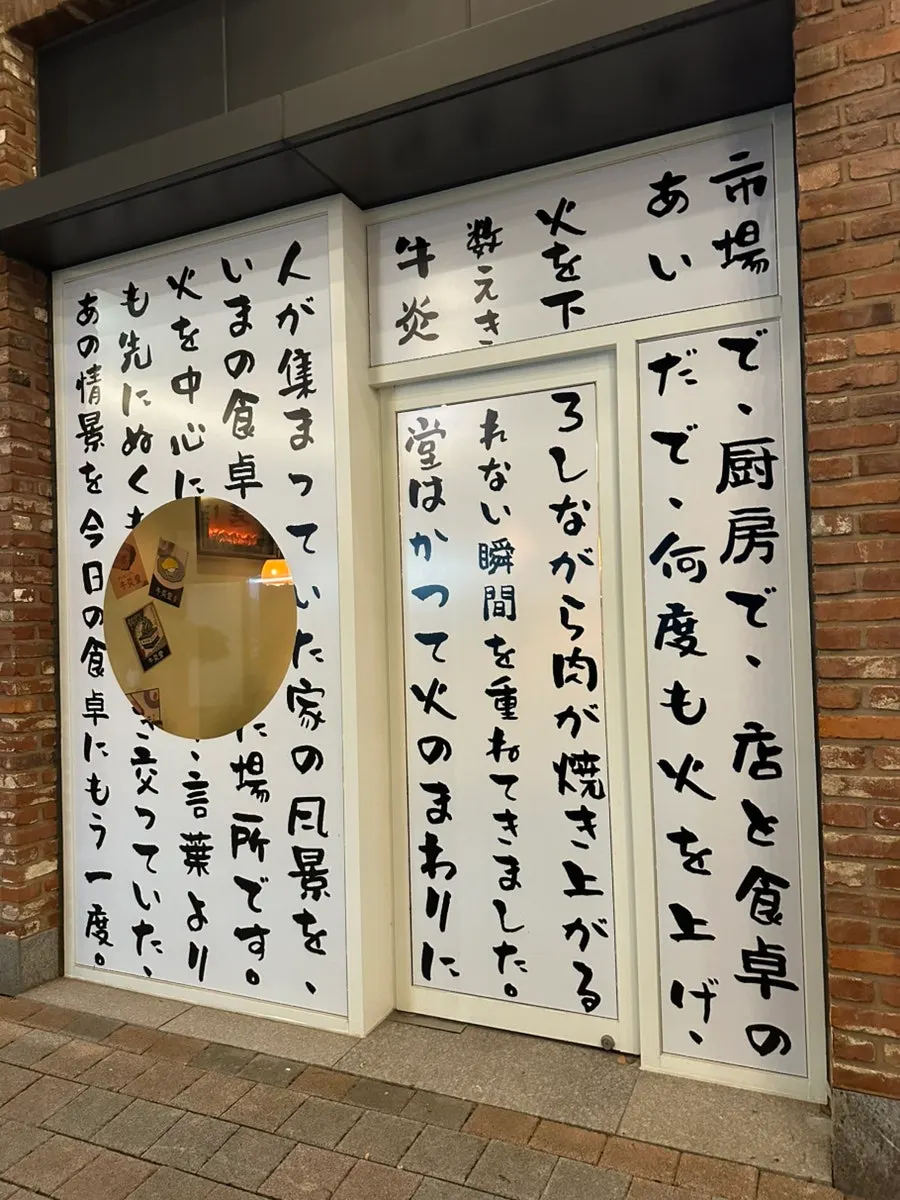 市場で、厨房で、店と食卓の
あいだで、何度も火を上げ、
火を下ろしながら肉が焼き上がる
数えきれない瞬間を重ねてきました。
牛炎堂はかつて火のまわりに
人が集まっていた家の风景を、
いまの食卓 た場所です。
火を中心に 、言葉より
も先にぬくも 交っていた、
あの情景を今日の食卓にもう一度。